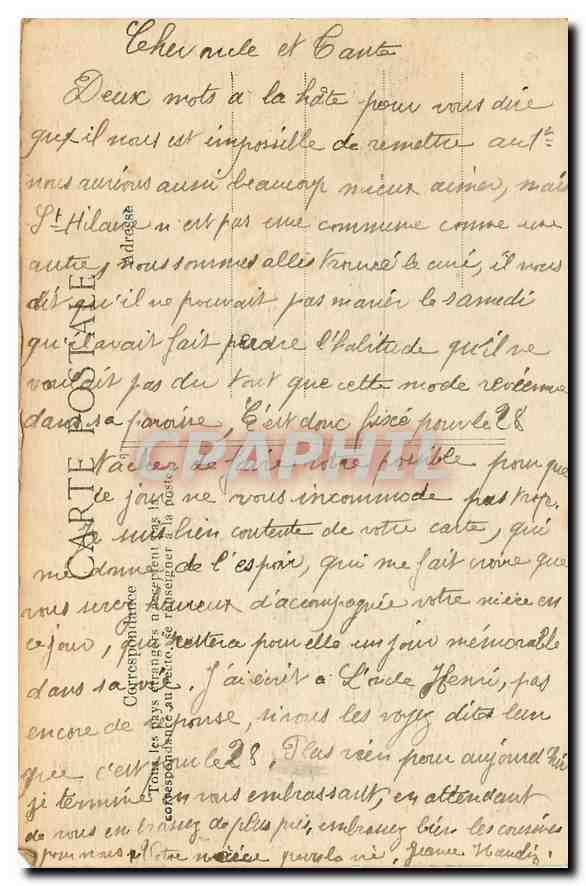 Cher oncle et Tante
Deux mots à la hâte pour vous dire
qu'il nous est impossible de remettre au 1er
nous aurions aussi beaucoup mieux aimer, mais
St Hilaire n'est pas une commune comme une
autre, nous sommes alles trouvé le curé, il nous
dit qu'il ne pouvait pas marier le samedi
qu'il avait fait perdre l'habitude qu'il ne
voulait pas du tout que cette mode revienne
dans sa paroisse, C'est donc fixé pour le 28
tacher de faire votre posible pour que
ce jour ne vous incommode pas trop.
Je suis bien contente de votre carte, qui
me donne de l'espoir, qui me fait croire que
vous serez heureux d'accompagnée votre nièce en
ce jour, qui restera pour elle un jour mémorable
dans sa vie. J'ai écrit à L'oncle Henri, pas
encore de reponse, si vous les voyez dites leur
que c'est pour le 28. Plus rien pour aujourd'hui
je termine en vous embrassant, en attendant
de vous embrassez de plus près, embrassez bien les cousines
pour nous Votre nièce pour la vie. Jeanne
CARTE POSTALE
Correspondance
Adresse
Tous les pays étrangers n'acceptent pas la
correspondance au recto, se renseigner à la poste
CPAPHIL.com